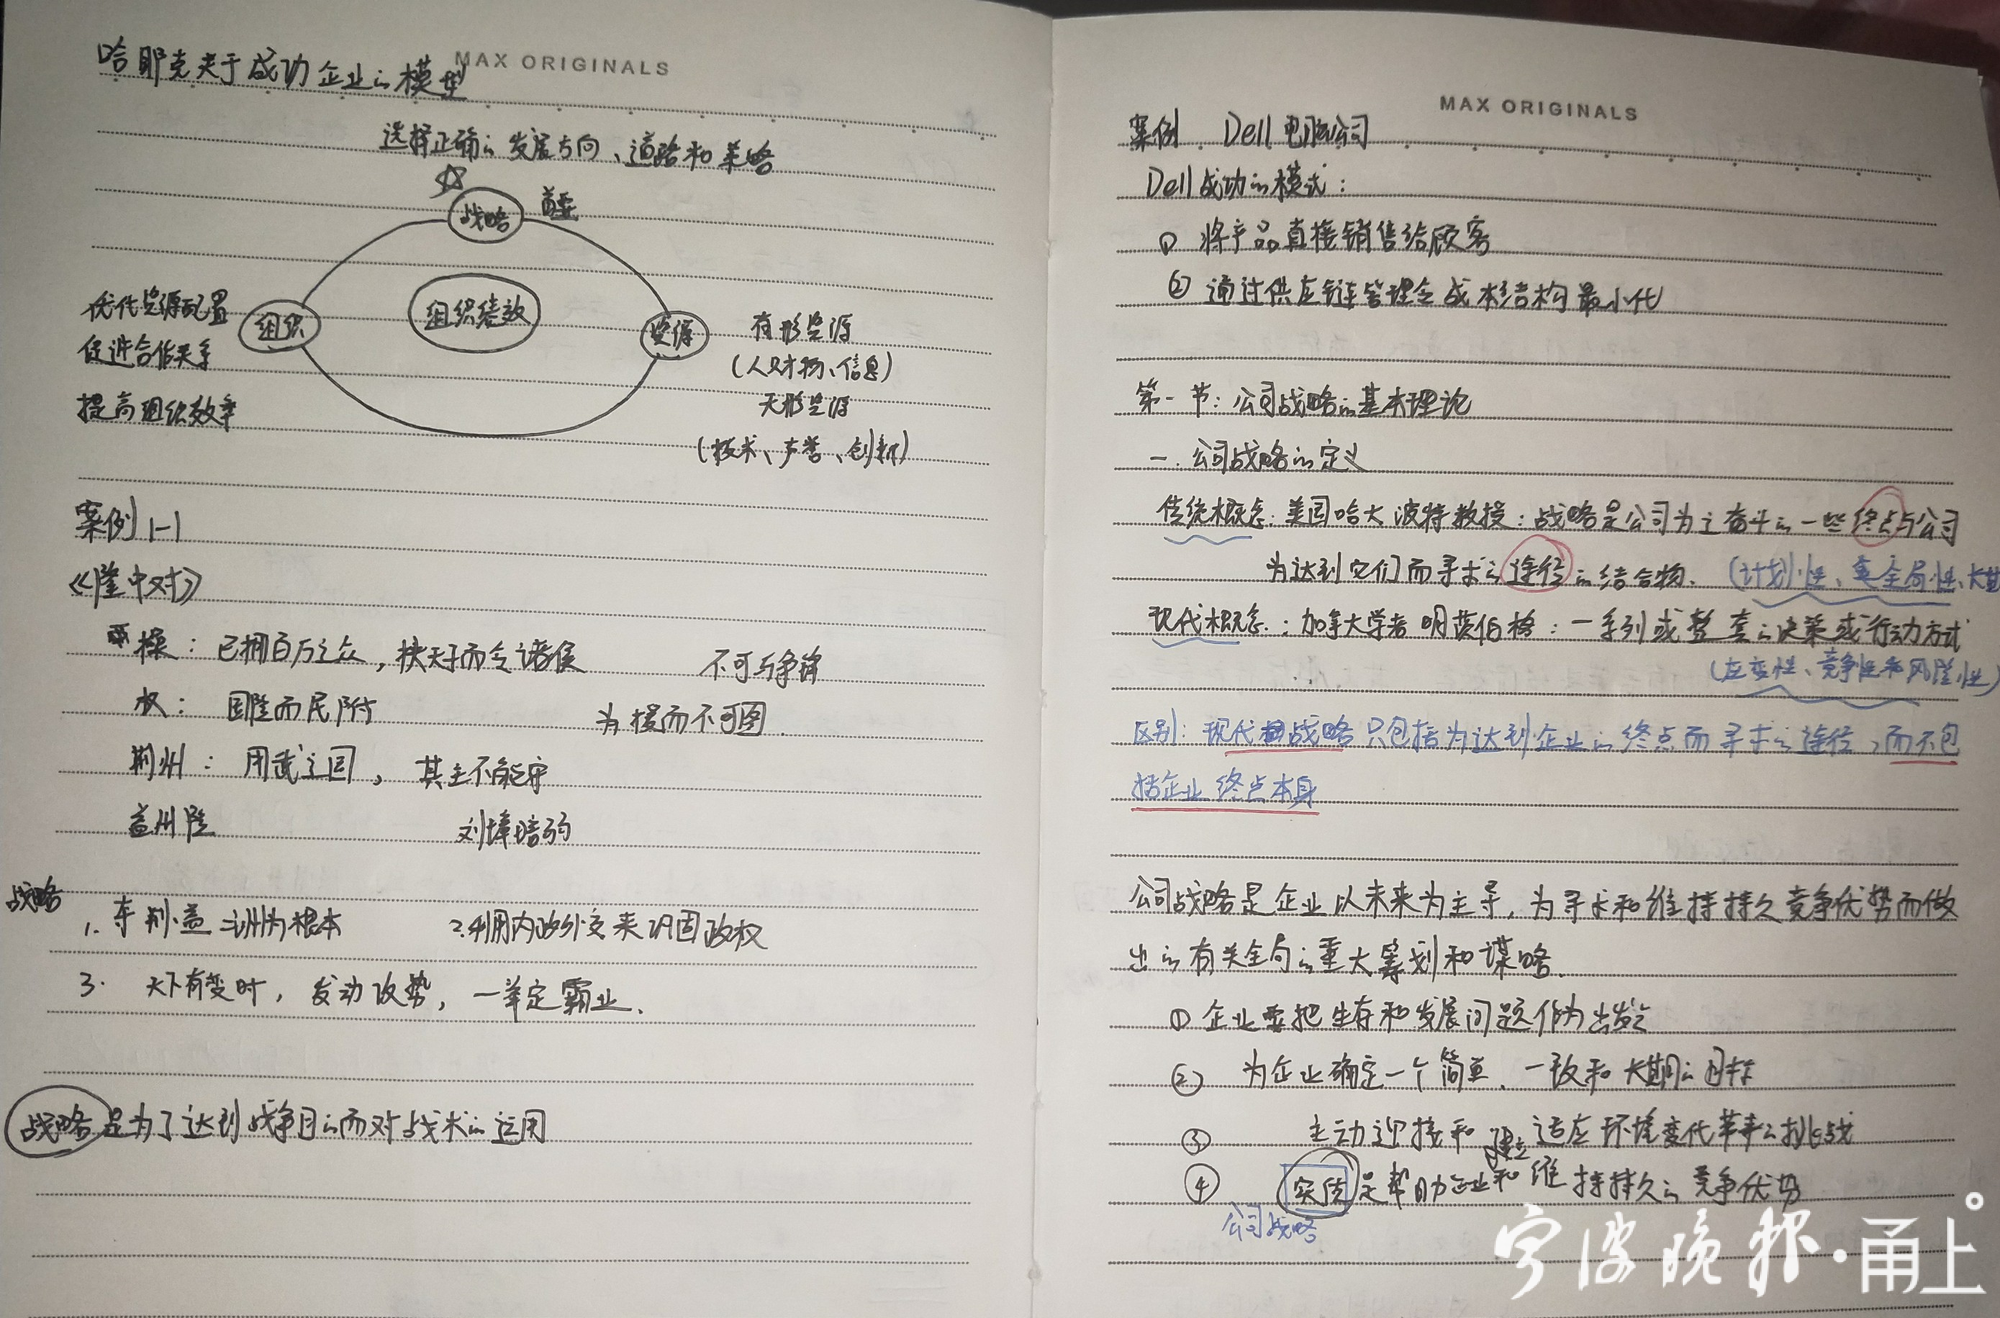 MAX ORIGINALS
哈耶克关于成功企业的模型
选择正确的发展方向、道路和策略
战略 首要
组织绩效
组织
资源
优化资源配置
促进合作关系
提高组织效率
有形资源
(人财物、信息)
无形资源
(技术、声誉、创新)
案例1-1
《隆中对》
操：已拥百万之众，挟天子而令诸侯 不可与争锋
权：国险而民附 为援而不可图
荆州：用武之国，其主不能守
益州险 刘璋暗弱
战略
1. 东荆、益二州为根本 2.利用内政外交来巩固政权
3. 天下有变时，发动攻势，一举定霸业.
战略是为了达到战争目的而对战术的运用
MAX ORIGINALS
案例 Dell电脑公司
Dell成功的模式：
① 将产品直接销售给顾客
② 通过供应链管理令成本结构最小化
第一节：公司战略的基本理论
一. 公司战略的定义
传统概念：美国哈大波特教授：战略是公司为之奋斗的一些终点与公司
为达到它们而寻求的途径的结合物. (计划性、全局性、长期
现代概念：加拿大学者明茨伯格：一系列或整套的决策或行动方式
(应变性、竞争性和风险性)
区别：现代战略只包括为达到企业的终点而寻求的途径，而不包
括企业终点本身
公司战略是企业以未来为主导，为寻求和维持持久竞争优势而做
出的有关全局的重大筹划和谋略.
① 企业要把生存和发展问题作为出发
② 为企业确定一个简单、一致和长期的目标
③ 主动迎接和适应环境变化带来的挑战
④ 实质是帮助企业建立和维持持久的竞争优势
公司战略
宁波晚报·甬上